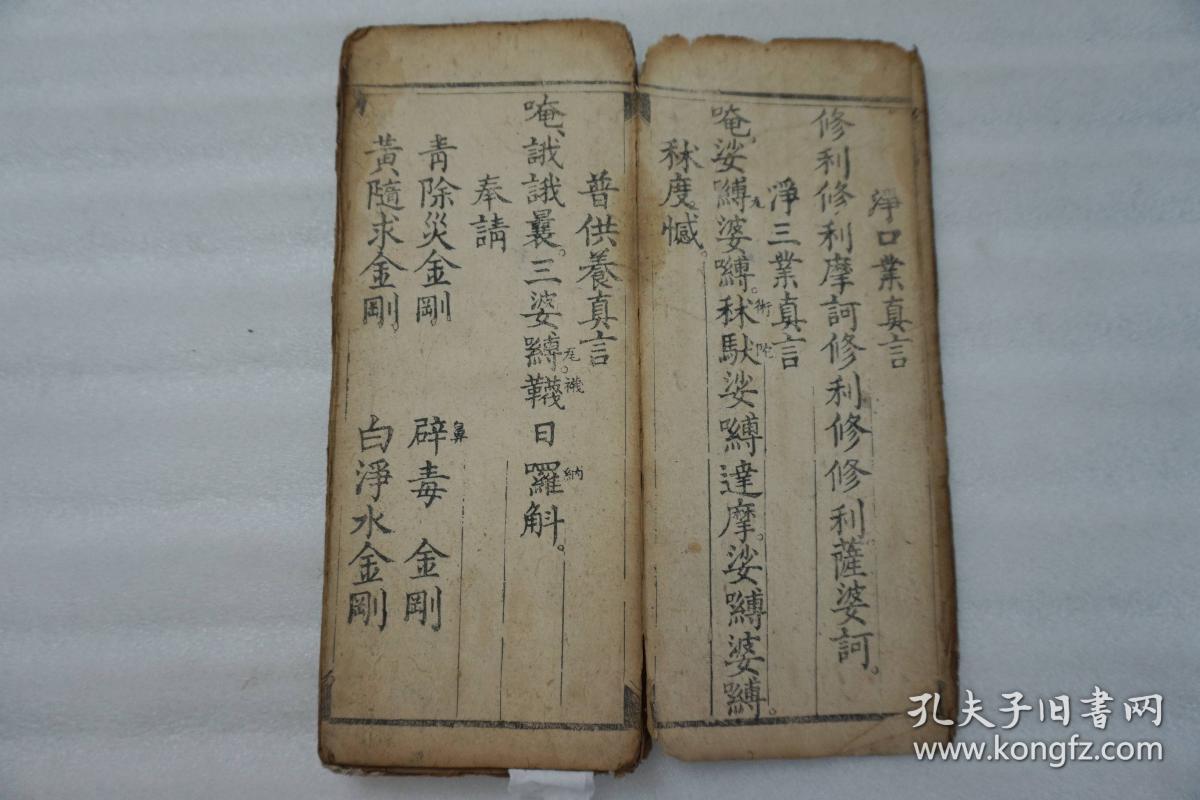 淨口業真言
修利修利摩訶修利修修利薩婆訶。
淨三業真言
唵、娑嚩婆嚩。秫馱娑嚩達摩。娑嚩婆嚩。
秫度憾。
術 陀
普供養真言
唵、誐誐曩。三婆嚩韈日囉斛。
襪 納
奉請
青除災金剛 辟毒金剛
鼻
黃隨求金剛。 白淨水金剛
孔夫子旧书网
www.kongfz.com